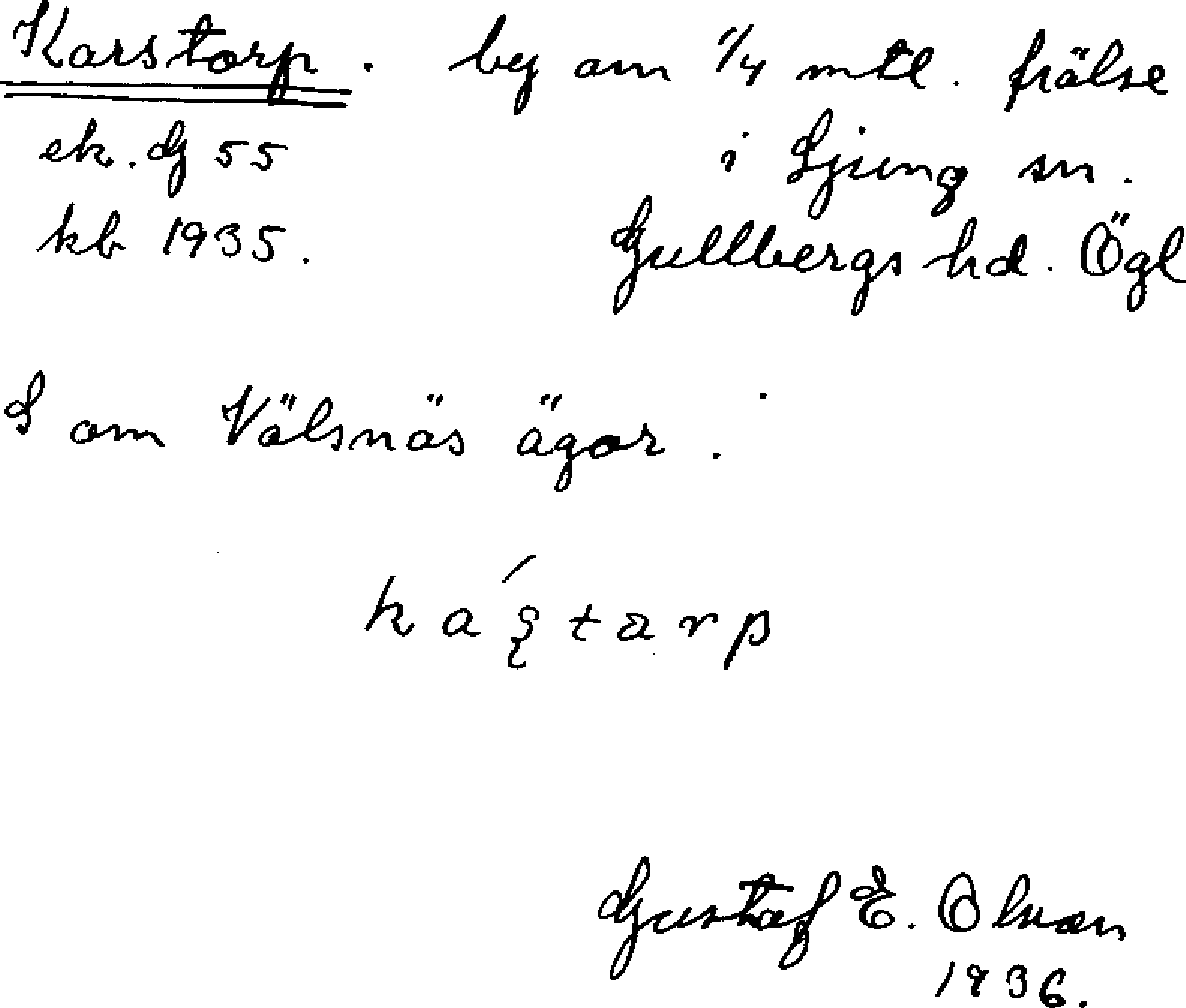 Karstorp. by om 1/4 mtl. frälse
ek. G 55 i Ljung sn.
kb 1935. Gullbergs hd. Ögl
S om Välsnäs ägor.
ka´ʂtarp
Gustaf E. Olson
1936.